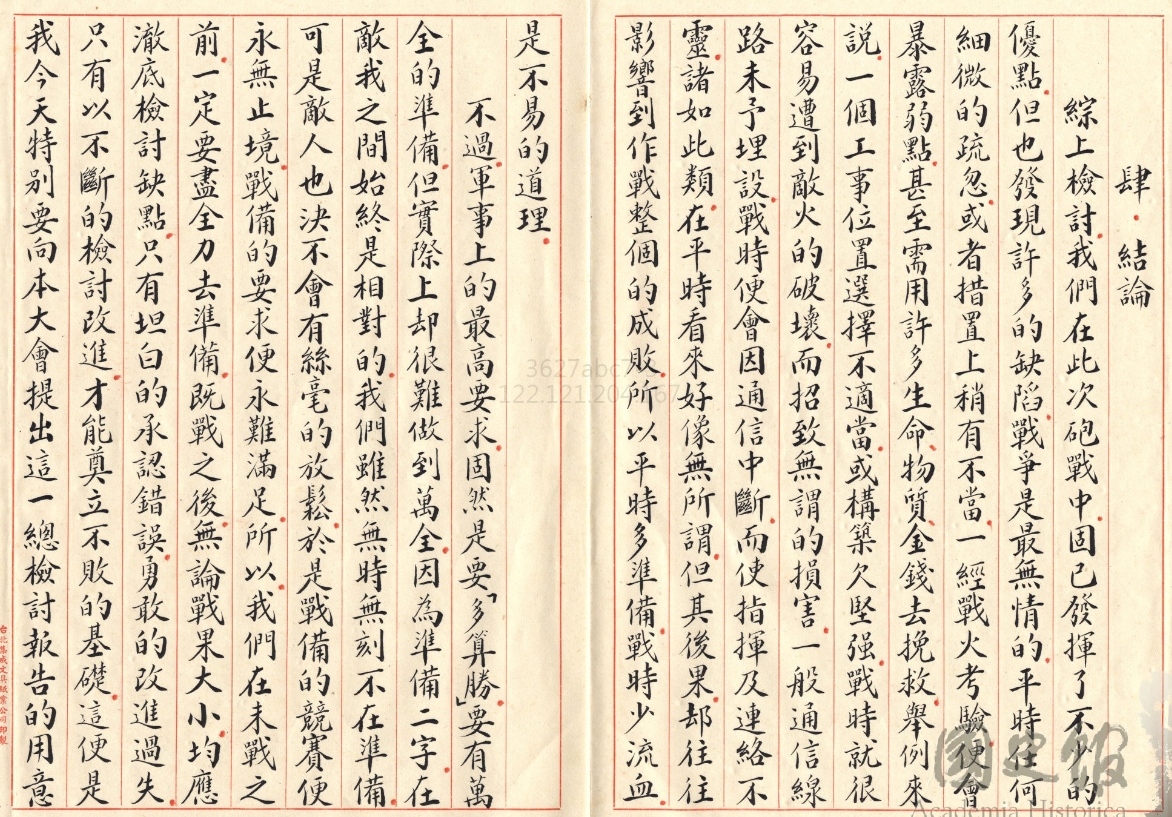 肆·結論
綜上檢討我們在此次砲戰中固已發揮了不少的
優點但也發現許多的缺陷戰爭是最無情的平時任何
細微的疏忽或者措置上稍有不當一經戰火考驗便會
暴露弱點甚至需用許多生命物質金錢去挽救舉例來
説一個工事位置選擇不適當或構築欠堅强戰時就很
容易遭到敵火的破壞而招致無謂的損害一般通信線
路未予埋設戰時便會因通信中斷而使指揮及連絡不
靈諸如此類在平時看來好像無所謂但其後果却往往
影響到作戰整個的成敗所以平時多準備戰時少流血
是不易的道理
不過軍事上的最高要求固然是要「多算勝」要有萬
全的準備但實際上却很難做到萬全因為準備二字在
敵我之間始終是相對的我們雖然無時無刻不在準備
可是敵人也決不會有絲毫的放鬆於是戰備的競賽便
永無止境戰備的要求便永難滿足所以我們在未戰之
前一定要盡全力去準備既戰之後無論戰果大小均應
澈底檢討缺點只有坦白的承認錯誤勇敢的改進過失
只有以不斷的檢討改進才能奠立不敗的基礎這便是
我今天特別要向本大會提出這一總檢討報告的用意
台北集成文具紙業公司印製
國史館
Academia Historica